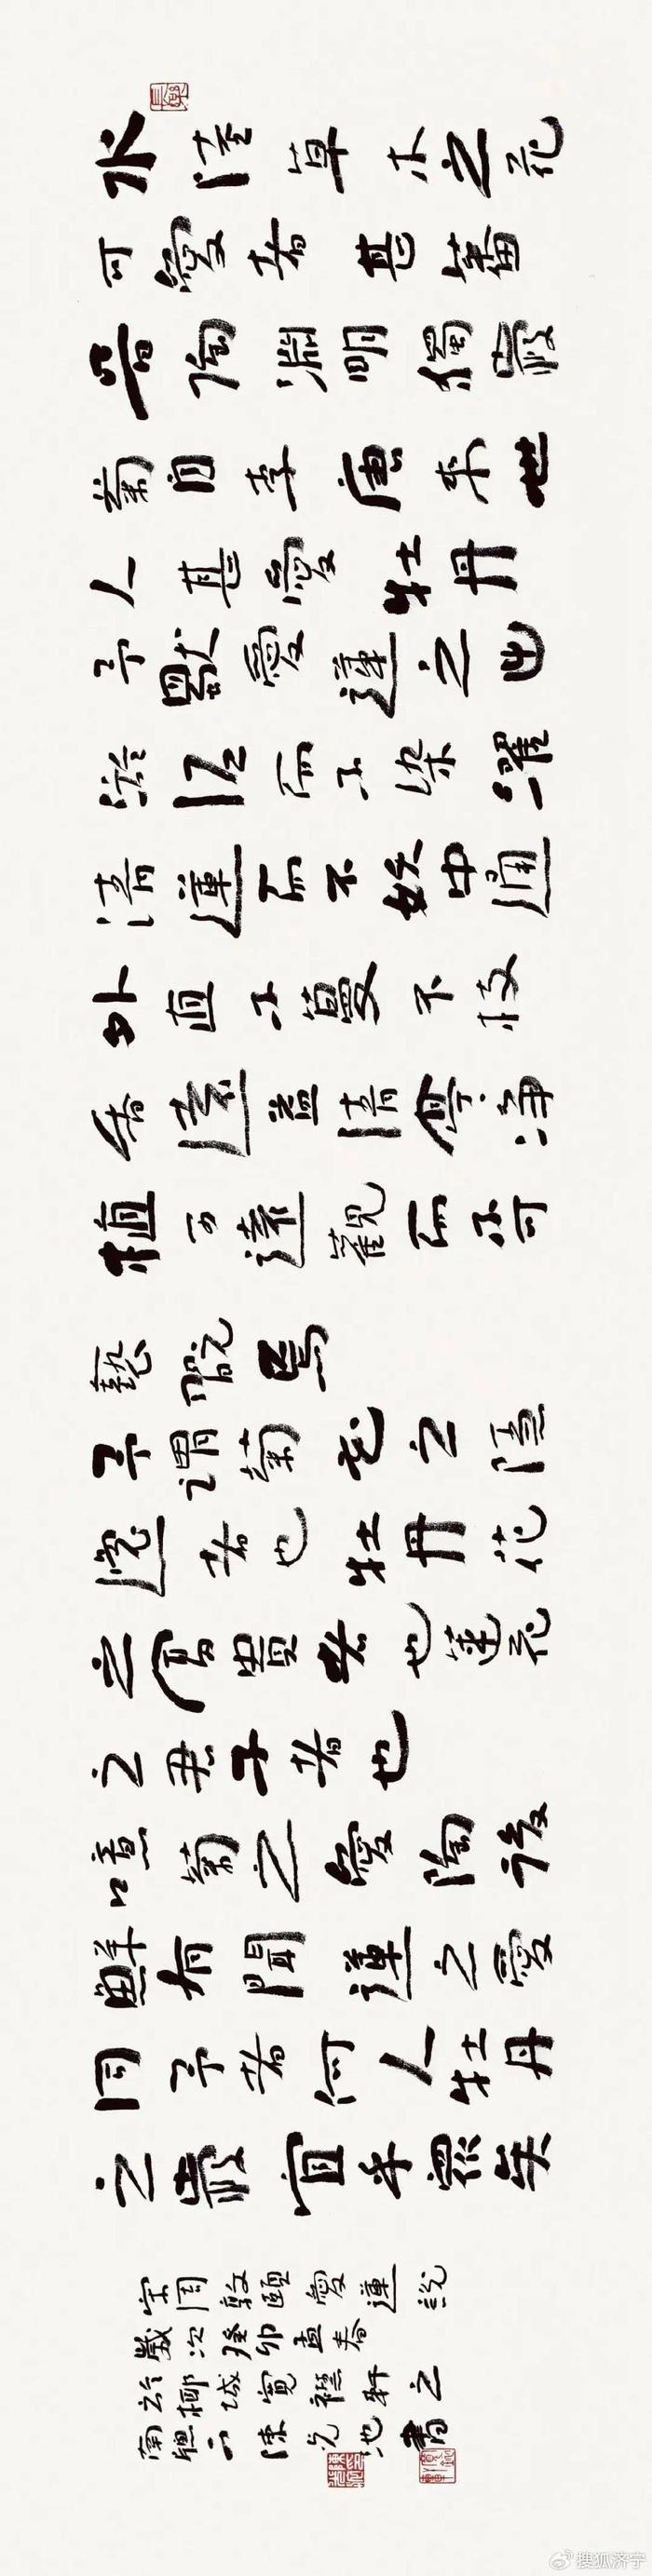 水陸草木之花
可愛者甚蕃
晉陶淵明獨愛
菊自李唐來世
人甚愛牡丹
予獨愛蓮之出
淤泥而不染濯
清漣而不妖中通
外直不蔓不枝
香遠益清亭〻淨
植可遠觀而不可
褻翫焉
予謂菊花之隱
逸者也牡丹花
之富貴者也蓮花
之君子者也
噫菊之愛陶後
鮮有聞蓮之愛
同予者何人牡丹
之愛宜乎眾矣
宋周敦頤愛蓮說
歲次癸卯孟春
於椰城寬軒之
南窗下陳光池書
搜狐济宁